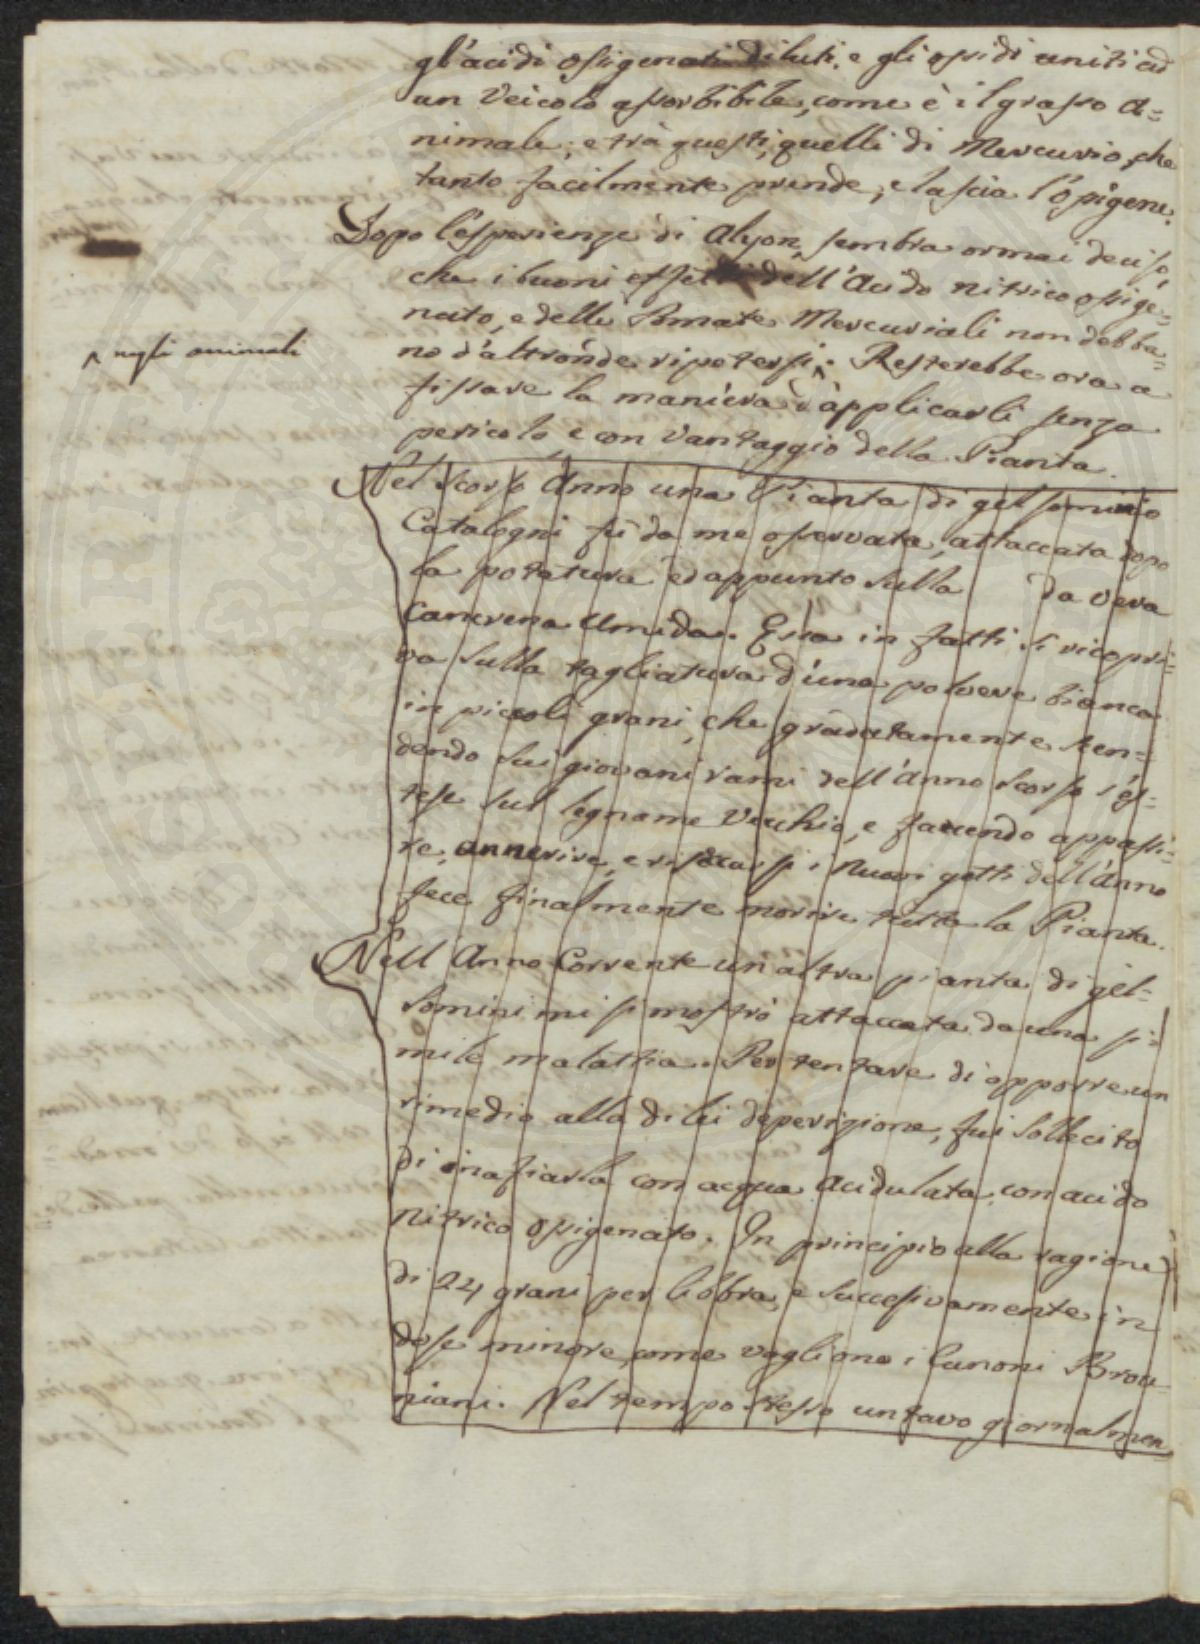 gl'acidi ossigenati diluti, e gli ossidi uniti ad
un Veicolo assorbibile, come è il grasso a=
nimale, e trà questi, quelli di Mercurio, che
tanto facilmente prende, e lascia l'ossigene.
Dopo l'esperienze di Alyon, sembra ormai deciso,
che i buoni effetti dell'Acido nitrico ossige=
nato, e delle Pomate Mercuriali non debba=
no d'altronde ripetersi. Resterebbe ora a
negli animali
fissare la maniera d'applicarli senza
pericolo e con Vantaggio della Pianta.
Nel scorso Anno una Pianta di gelsomino
Catalogni fù da me osservata, attaccata dopo
la potatura ed appunto sulla da vera
Cancrena Umida. Essa in fatti si ricopri=
va sulla tagliatura d'una polvere bianca
in piccoli grani, che gradatamente sten=
dendo sui giovani rami dell'anno scorso s'es=
tese sul legname Vecchio, e facendo appassi=
re, annerire, e risecarsi i nuovi getti dell'anno
fece finalmente morire tutta la Pianta.
Nell Anno Corrente un'altra pianta di gel=
somini mi si mostrò attaccata da una si=
mile malattia. Per tentare di opporre un
rimedio alla di lei deperizione, fui sollecito
di inafiarla con acqua acidulata con acido
nitrico ossigenato. In principio alla ragione
di 24 grani per libbra, e successivamente in
dose minore, come vogliono i Canoni Brou=
niani. Nel tempo stesso untavo giornalmen=